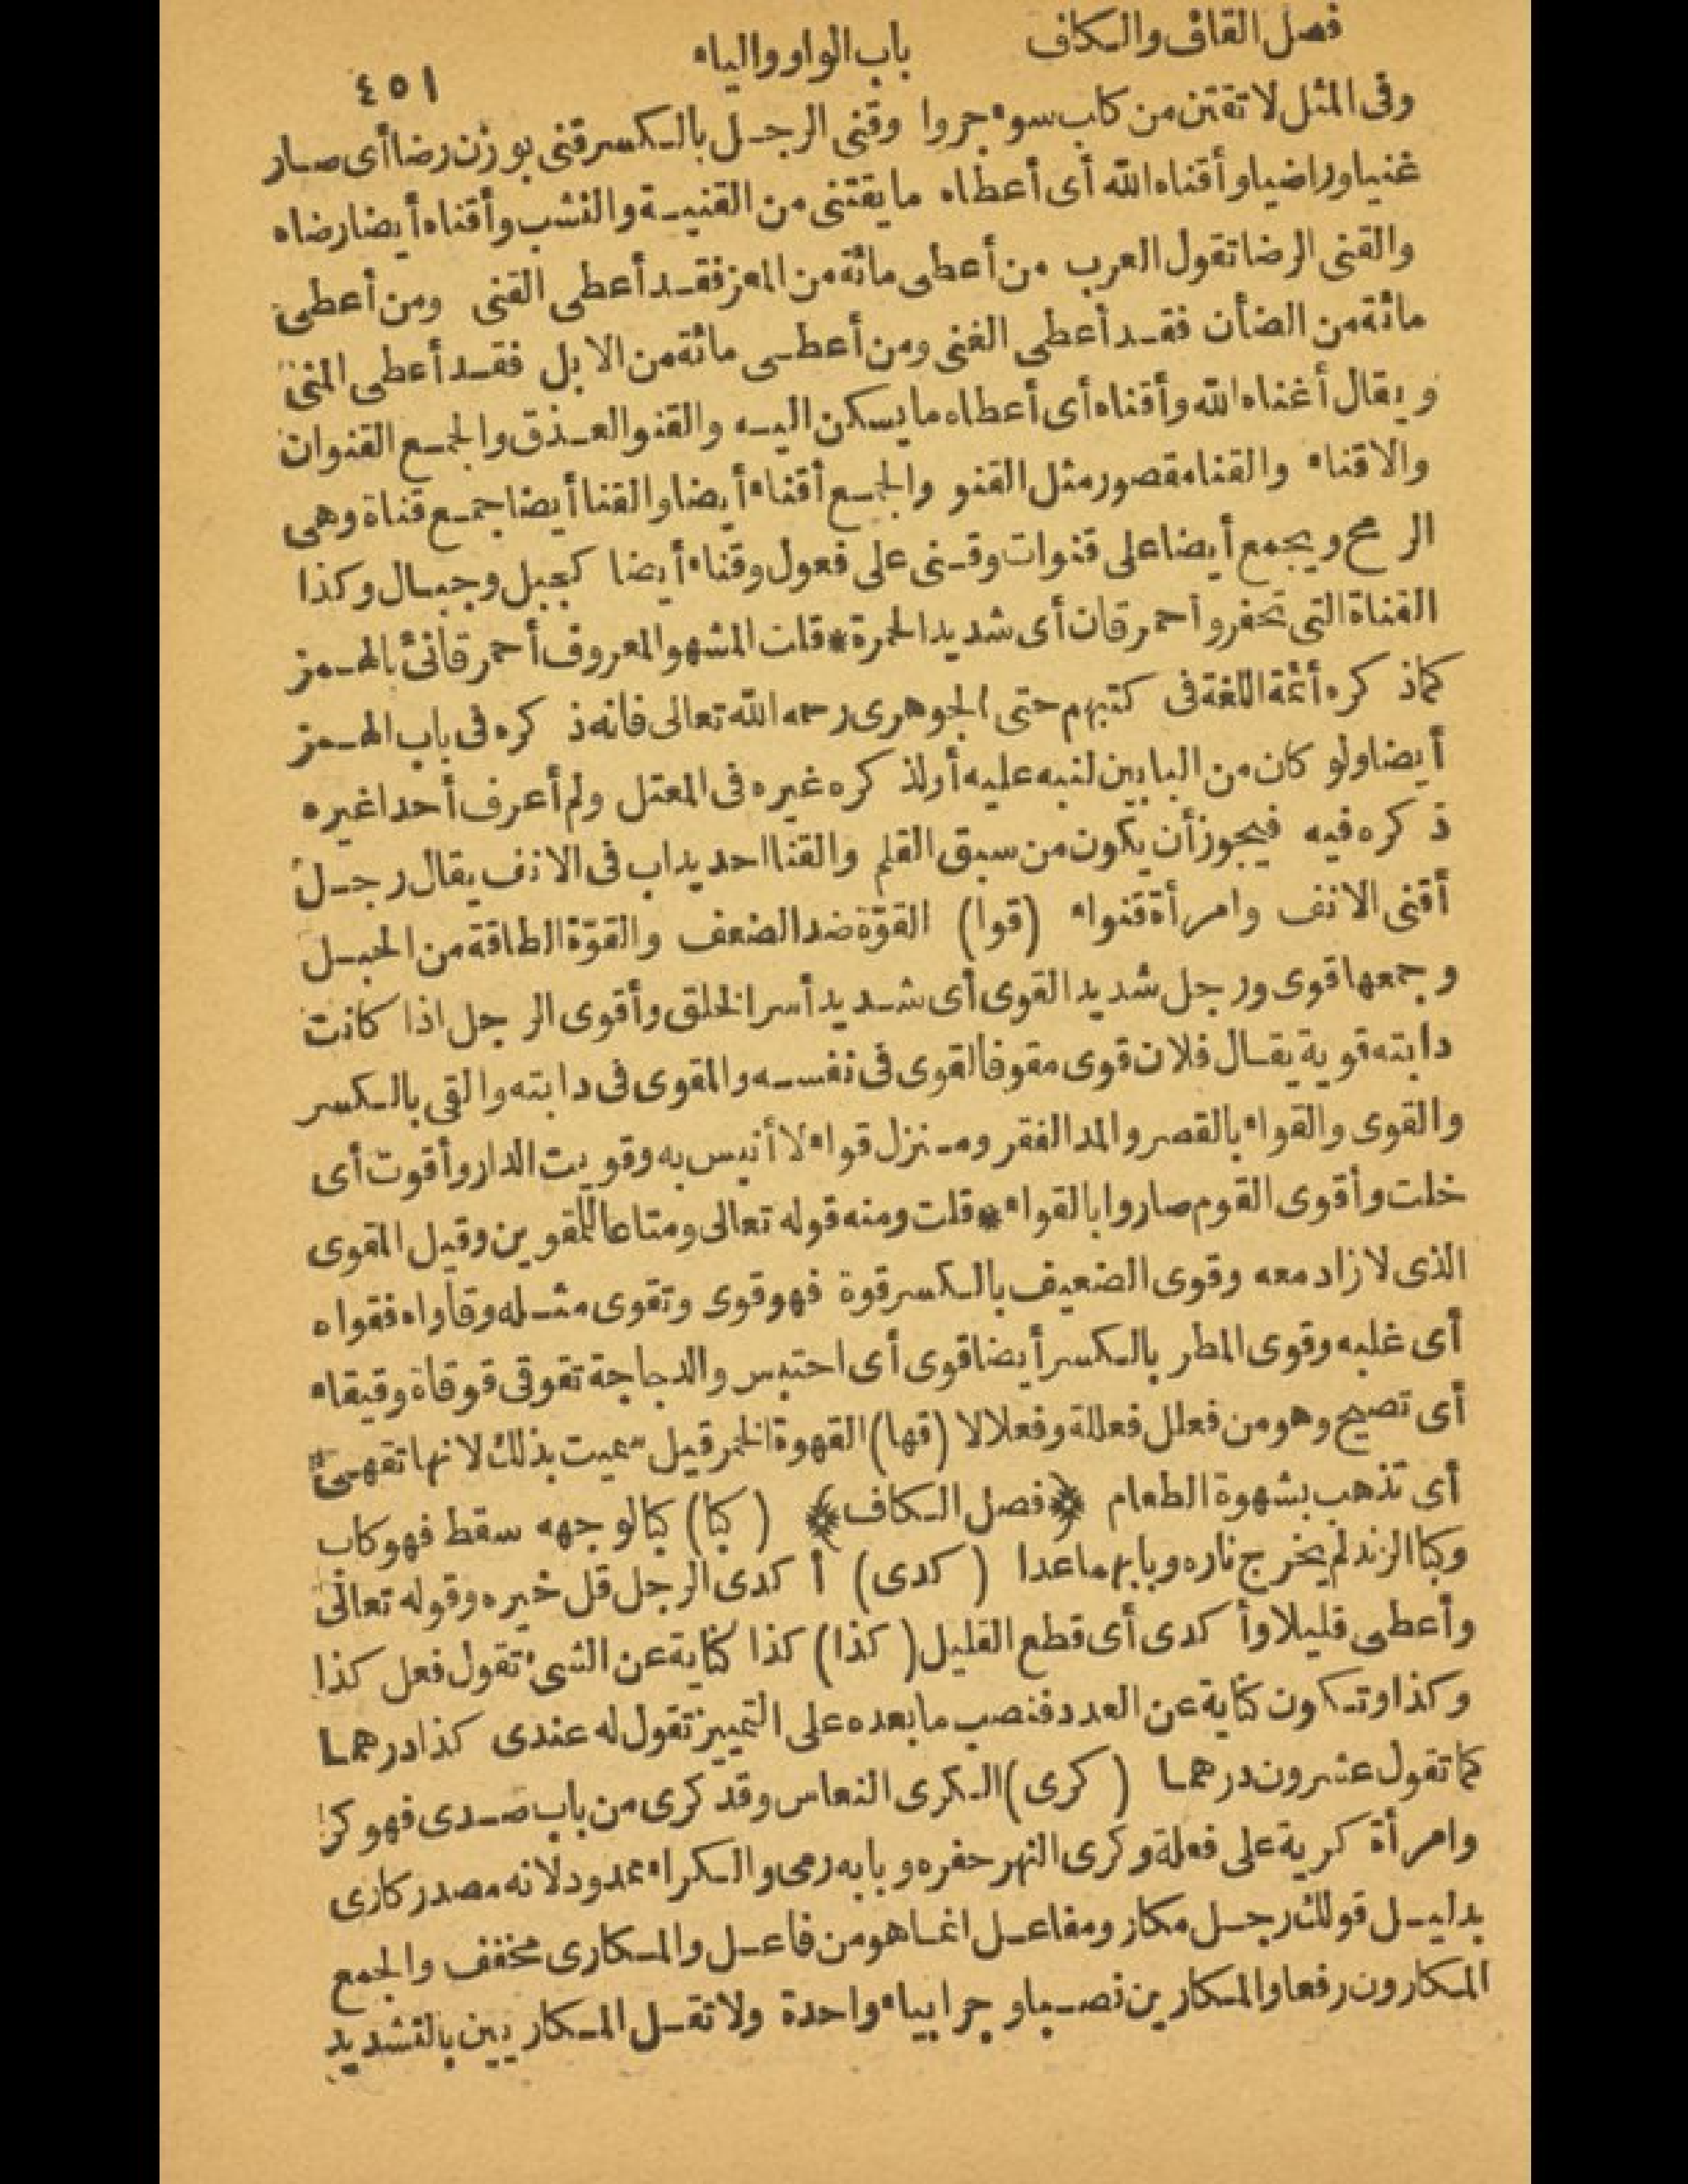 فصل القاف والكاف باب الواو والياء ٤٥١
وفى المثل لا تقتن من كلب سوء جروا وقنى الرجل بالكسر قنى بوزن رضا أى صار
غنيا وراضيا وأقناه الله أى أعطاه ما يقتنى من القنية والنشب وأقناه أيضا رضاه
والقنى الرضا تقول العرب من أعطى مائة من المعز فقد أعطى القنى ومن أعطى
مائة من الضأن فقد أعطى الغنى ومن أعطى مائة من الابل فقد أعطى المنى
ويقال أغناه الله وأقناه أى أعطاه ما يسكن اليه والقنو العذق والجمع القنوات
والاقناء والقنا مقصور مثل القنو والجمع أقناء أيضا والقنا أيضا جمع قناة وهى
الرمح ويجمع أيضا على قنوات وقنى على فعول وقناء أيضا كجبل وجبال وكذا
القناة التى تحفر وأحمر قان أى شديد الحمرة * قلت المشهو المعروف أحمر قانئ بالهمز
كما ذكره أئمة اللغة فى كتبهم حتى الجوهرى رحمه الله تعالى فانه ذكره فى باب الهمز
أيضا ولو كان من البابين لنبه عليه أو لذكره غيره فى المعتل ولم أعرف أحدا غيره
ذكره فيه فيجوز أن يكون من سبق القلم والقنا احديداب فى الانف يقال رجل
أقنى الانف وامرأة قنواء (قوا) القوّة ضد الضعف والقوّة الطاقة من الحبل
وجمعها قوى ورجل شديد القوى أى شديد أسر الخلق وأقوى الرجل اذا كانت
دابته قوية يقال فلان قوى مقو فالقوى فى نفسه والمقوى فى دابته والقى بالكسر
والقوى والقواء بالقصر والمد الفقر ومنزل قواء لا أنيس به وقويت الدار وأقوت أى
خلت وأقوى القوم صاروا بالقواء * قلت ومنه قوله تعالى ومتاعا للمقوين وقيل المقوى
الذى لا زاد معه وقوى الضعيف بالكسر قوة فهو قوى وتقوى مثله وقاواه فقواه
أى غلبه وقوى المطر بالكسر أيضا قوى أى احتبس والدجاجة تقوقى قوقاة وقيقاء
أى تصيح وهو من فعلل فعللة وفعلالا (قها) القهوة الخمر قيل سميت بذلك لانها تقهى
أى تذهب بشهوة الطعام ﴿فصل الكاف﴾ (كبا) كبا لوجهه سقط فهو كاب
وكبا الزند لم يخرج ناره وبابهما عدا (كدى) أكدى الرجل قل خيره وقوله تعالى
وأعطى قليلا وأكدى أى قطع القليل (كذا) كذا كناية عن الشىء تقول فعل كذا
وكذا وتكون كناية عن العدد فنصب ما بعده على التمييز تقول له عندى كذا درهما
كما تقول عشرون درهما (كرى) الكرى النعاس وقد كرى من باب صدى فهو كر
وامرأة كرية على فعلة وكرى النهر حفره وبابه رمى والكراء ممدود لانه مصدر كارى
بدليل قولك رجل مكار ومفاعل انما هو من فاعل والمكارى مخفف والجمع
المكارون رفعا والمكارين نصبا وجرا بياء واحدة ولا تقل المكاريين بالتشديد